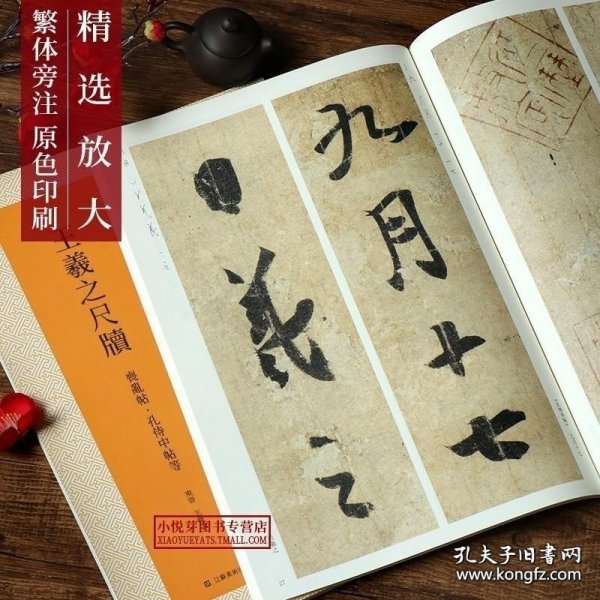 精选放大
繁体旁注 原色印刷
九月十七
日羲之
王羲之尺牘
喪亂帖·孔侍中帖等
東晉
小悦芽图书专营店
XIAOYUEYATS.TMALL.COM
27
孔夫子旧书网
www.kongfz.com